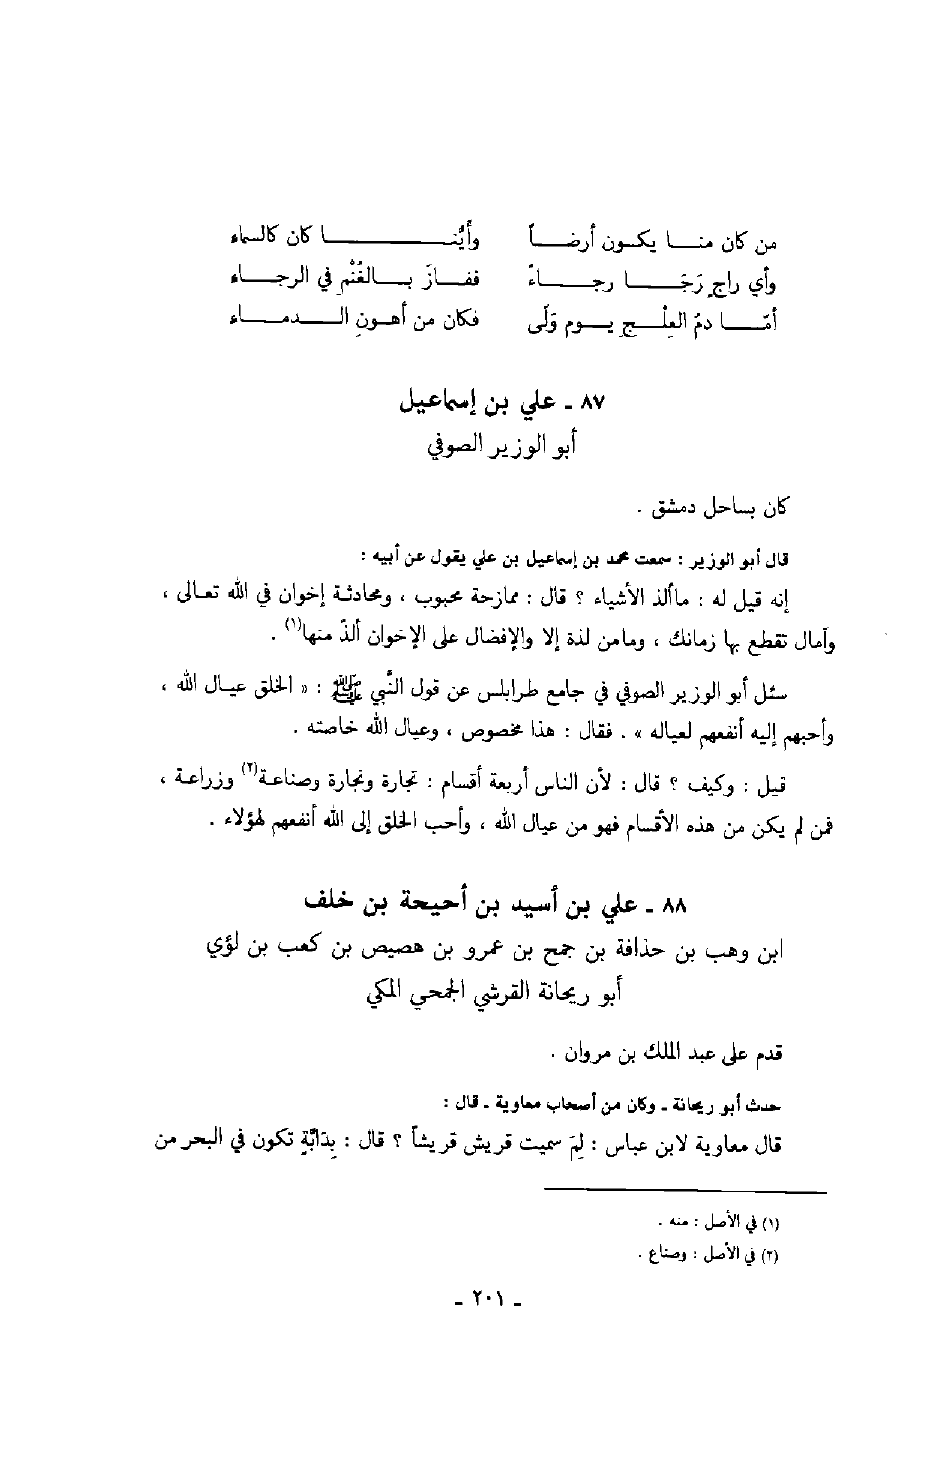 من كان منا يكون أرضاً وأيُّنا كان كالسماء
وأي راجٍ رَجَا رجاءً ففازَ بالغُنْمِ في الرجاء
أمّا دمُ العِلْجِ يوم وَلَى فكان من أهونِ الدماء
٨٧ ـ علي بن إسماعيل
أبو الوزير الصوفي
كان بساحل دمشق .
قال أبو الوزير : سمعت محمد بن إسماعيل بن علي يقول عن أبيه :
إنه قيل له : ماألذ الأشياء ؟ قال : ممازحة محبوب ، ومحادثة إخوان في الله تعالى ،
وآمال تقطع بها زمانك ، ومامن لذة إلا والإفضال على الإخوان ألذّ منها(١) .
سئل أبو الوزير الصوفي في جامع طرابلس عن قول النَّبي ﷺ : « الخلق عيال الله ،
وأحبهم إليه أنفعهم لعياله » . فقال : هذا مخصوص ، وعيال الله خاصته .
قيل : وكيف ؟ قال : لأن الناس أربعة أقسام : تجارة ونجارة وصناعة(٢) وزراعة ،
فمن لم يكن من هذه الأقسام فهو من عيال الله ، وأحب الخلق إلى الله أنفعهم لهؤلاء .
٨٨ ـ علي بن أسيد بن أحيحة بن خلف
ابن وهب بن حذافة بن جمح بن عمرو بن هصيص بن كعب بن لؤي
أبو ريحانة القرشي الجمحي المكي
قدم على عبد الملك بن مروان .
حدث أبو ريحانة ـ وكان من أصحاب معاوية ـ قال :
قال معاوية لابن عباس : لِمَ سميت قريش قريشاً ؟ قال : بِدَابَّةٍ تكون في البحر من
(١) في الأصل : منه .
(٢) في الأصل : وصناع .
ـ ٢٠١ ـ